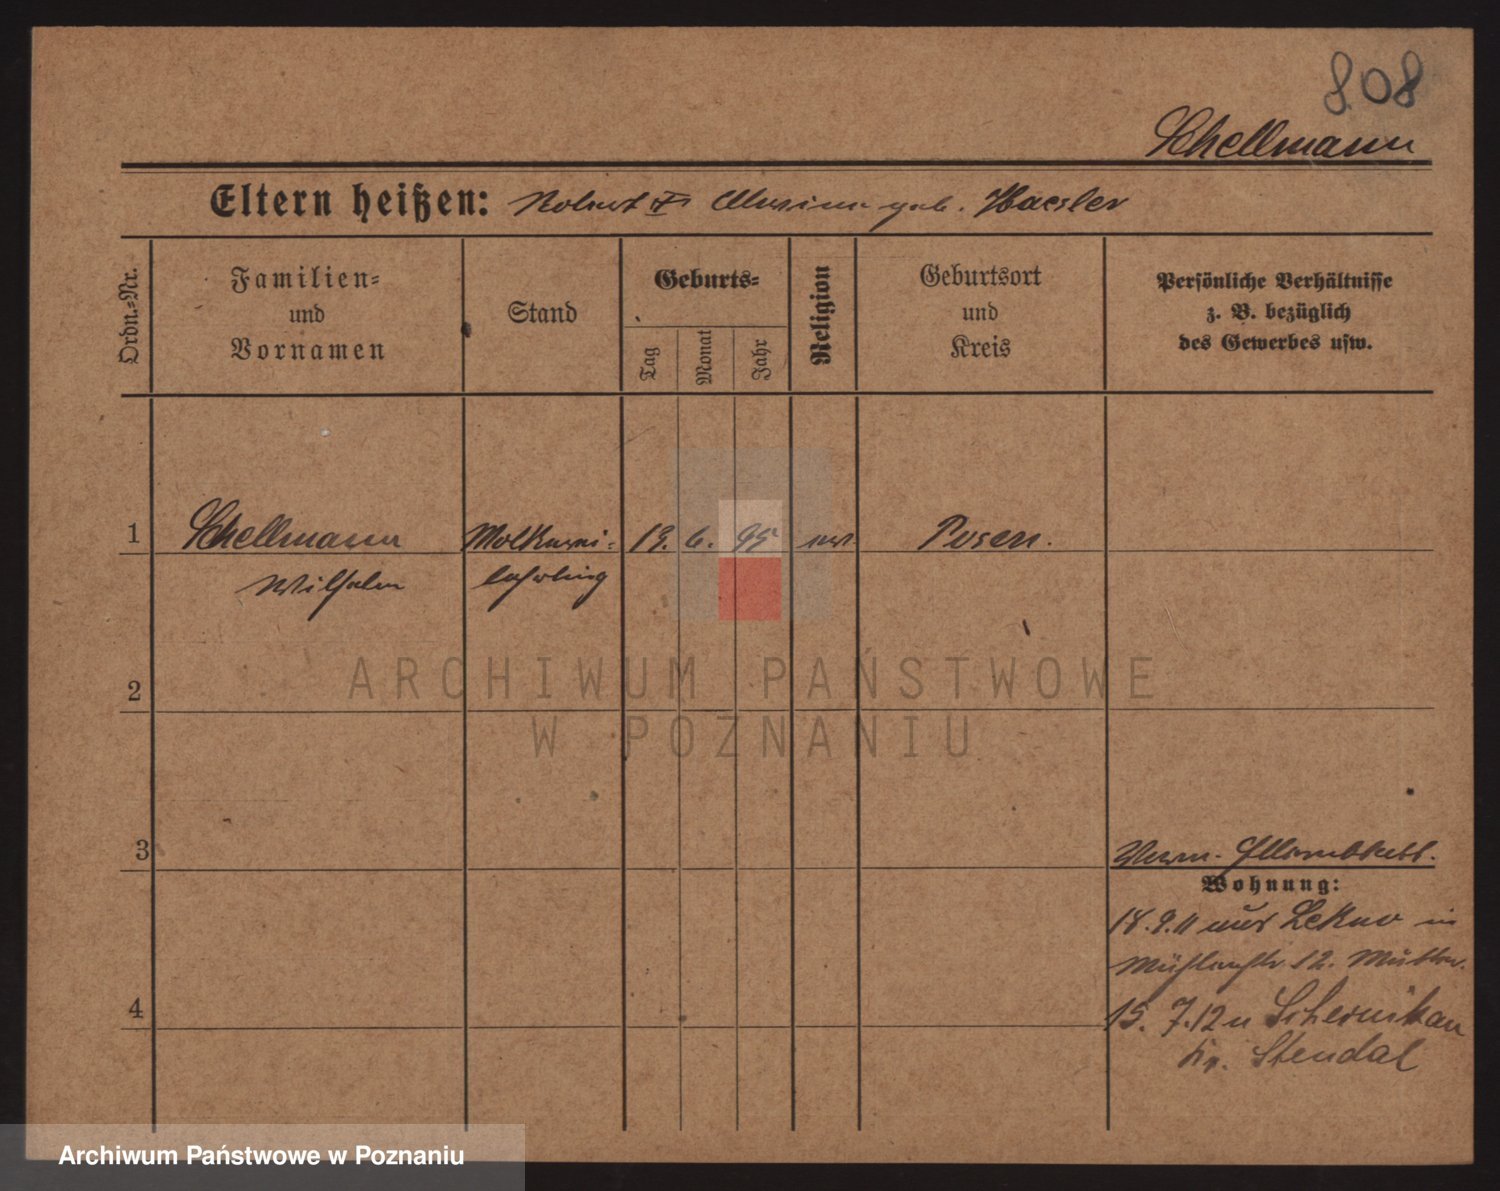 808
Schellmann
Eltern heißen: Robert geb. Haesler
Ordn.-Nr.
Familien-
und
Vornamen
Stand
Geburts-
Tag
Monat
Jahr
Religion
Geburtsort
und
Kreis
Persönliche Verhältnisse
z. B. bezüglich
des Gewerbes usw.
1 Schellmann Molkerei- 19. 6. 95 Posen.
Wilhelm lehrling
2
3
Wohnung:
18.9.11 aus Lekno in
Mühlenstr. 12. Mutter.
4
15. 7.12 n Schernikau
Kr. Stendal
ARCHIWUM PAŃSTWOWE
W POZNANIU
Archiwum Państwowe w Poznaniu